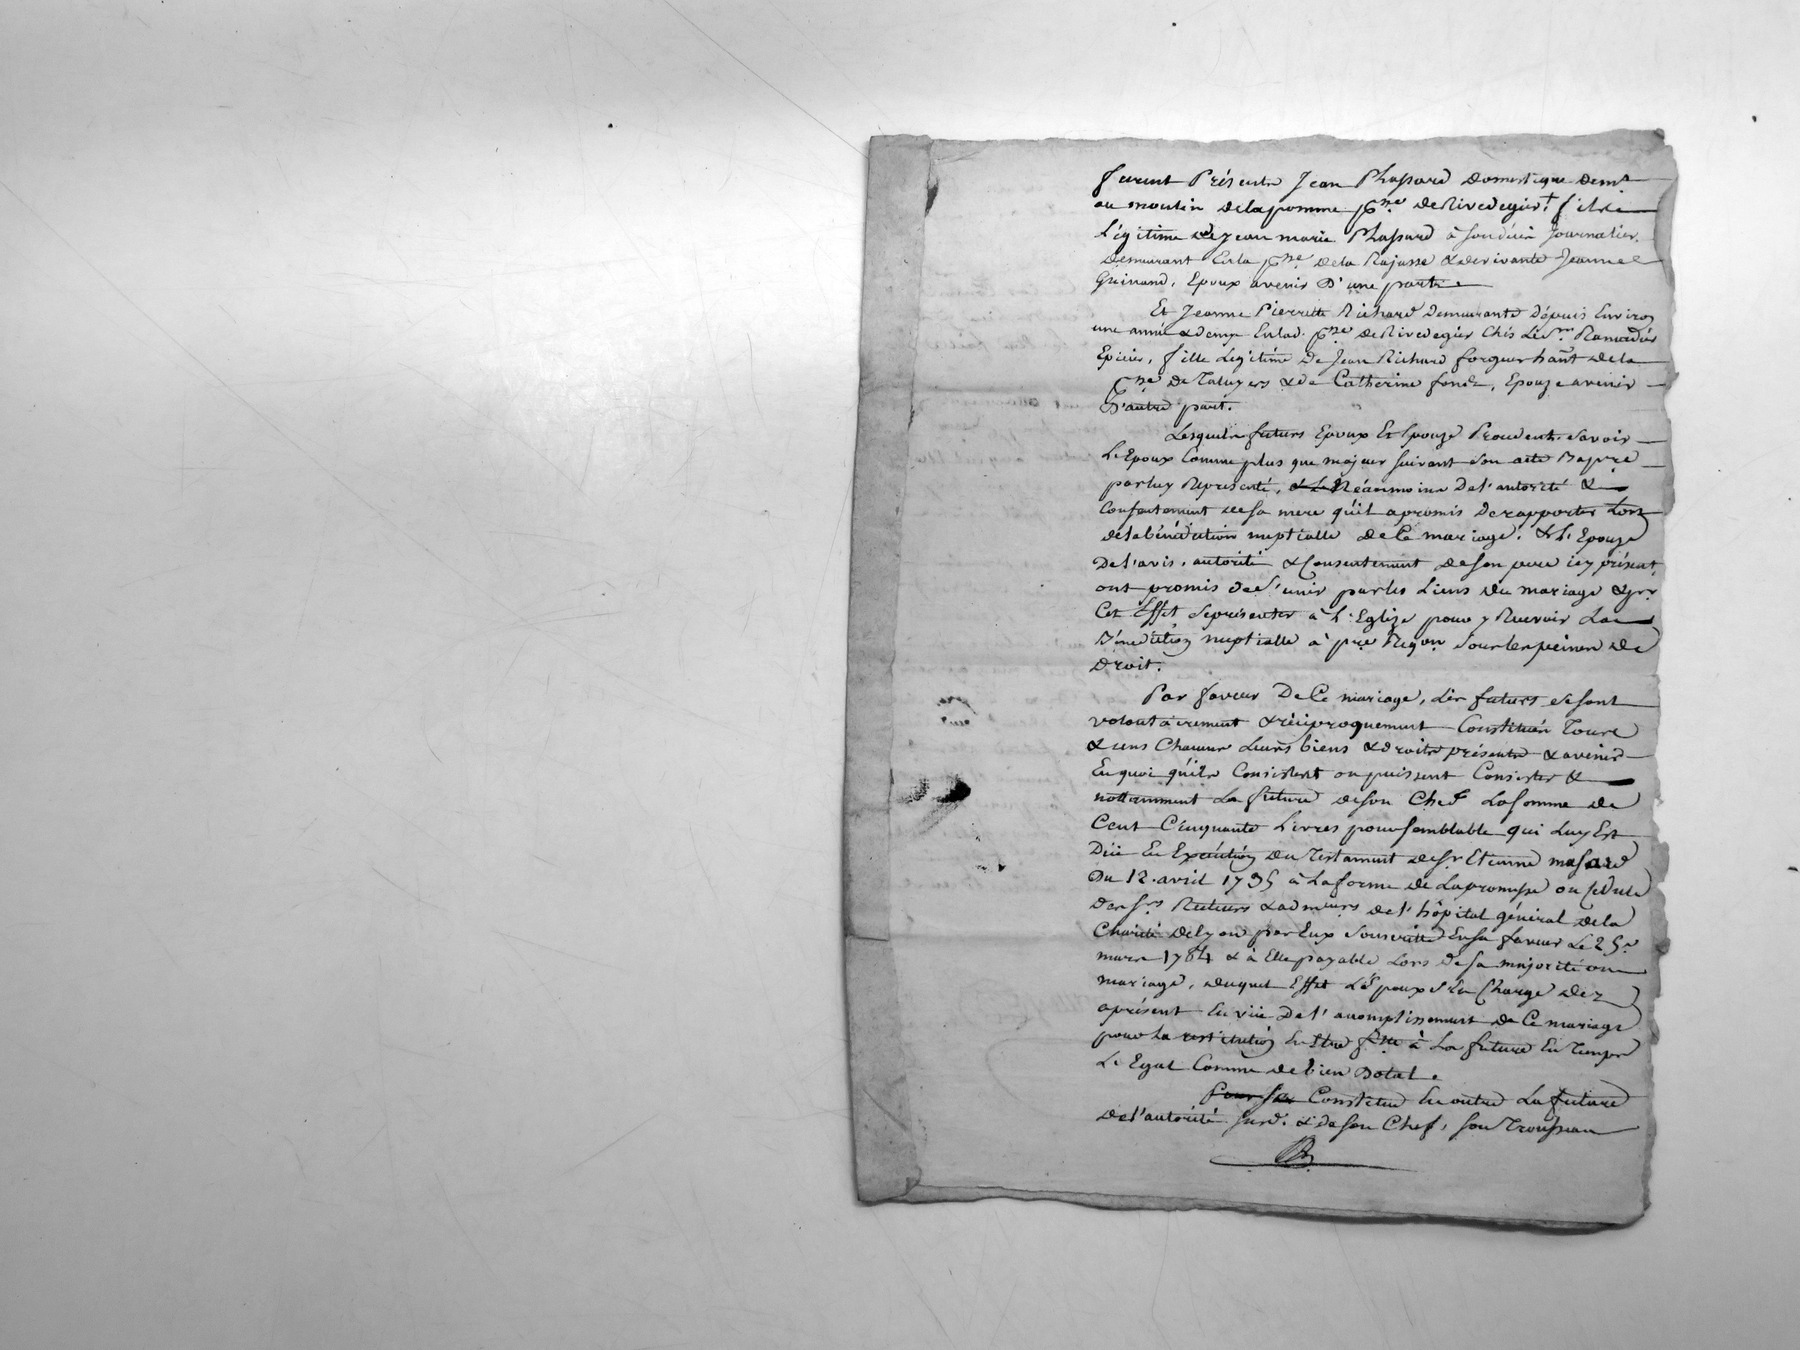 furent Présents Jean Phassard Domestique demt
au moulin delapomme psse de Rivedegier † fils
Légitime de Jean marie Phassard à Son décès Journalier
Demeurant En la psse de la Rajasse & de vivante Jeanne
Guinand, Epoux avenir D'une part.
Et Jeanne Pierrette Richard Demeurante Dépuis Environ
une année & demye En lad. psse de Rivedegier Chés Le Sr. Ramadier
Epicier, fille Legitime De Jean Richard forgeur hant de la
psse de Taluyers & de Catherine fond, Epouze avenir
D'autre part.
Lesquels futurs Epoux Et Epouze Procedent Savoir
L'Epoux Comme plus que majeur Suivant Son acte Baptre
par luy Représenté, Néanmoins De l'autorité &
Consentement de sa mere qu'il a promis De rapporter Lors
de la bénédiction nuptialle de Ce mariage. & L'Epouze
De l'avis, autorité & Consentement de son pere icy présent,
ont promis de S'unir par les Liens du mariage & pr
Cet Effet Se présenter à L'Eglize pour y Recevoir La
Bénédiction nuptialle à pre Réqon Sous les peines de
Droit.
Par faveur De Ce mariage, Les futurs Se sont
volontairement & réciproquement Constitués Tous
& uns Chacuns Leurs biens & droits présents & avenir
En quoi qu'ils Consistent ou puissent Consister &
nottamment La future de son Chef La Somme de
Cent Cinquante Livres pour semblable qui Luy Est
Düe En Exécution du Testament de Sr Etienne mazard
Du 12. avril 1735 à la forme de La promesse ou cédule
des Srs Recteurs & admeurs de l'hôpital général de la
Charité de Lyon par Eux Souscritte En sa faveur Le 25e
mars 1784 & à Elle payable Lors de sa majorité ou
mariage, duquel Effet L'Epoux S'en Charge dez
aprésent En vüe De l'accomplissement de Ce mariage
pour La restitution En Etre fte à La future En Temps
Le Egal Comme de bien Dotal.
Constitue En outre La future
de l'autorité Susd. & de son Chef, Son Trousseau